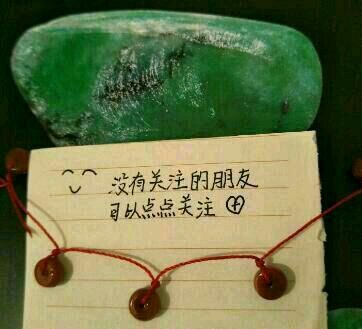 没有关注的朋友
可以点点关注